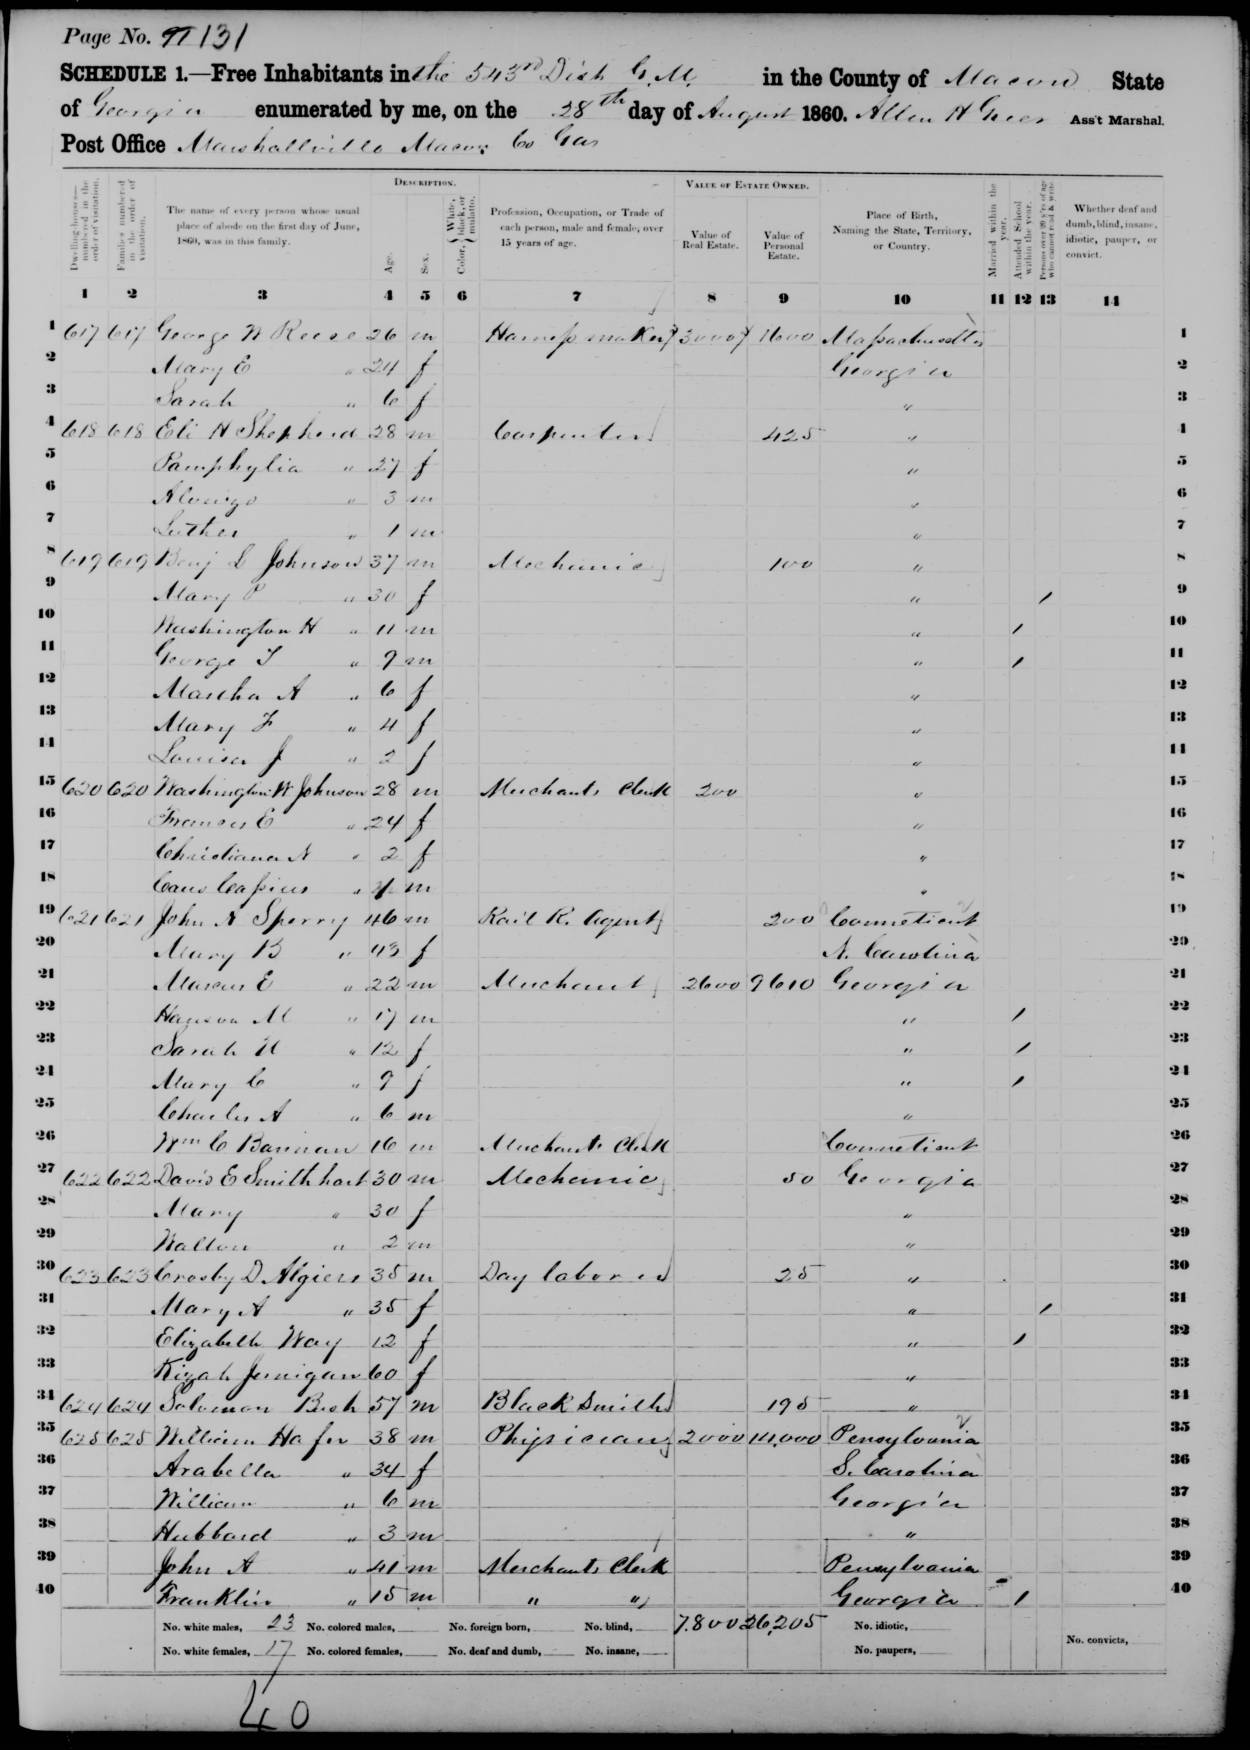 Page No. 131
SCHEDULE 1.—Free Inhabitants in the 543rd Dist G. M. in the County of Macon State
of Georgia enumerated by me, on the 28th day of August 1860. Allen H Greer Ass't Marshal.
Post Office Marshallville Macon Co Gas
DESCRIPTION. VALUE OF ESTATE OWNED.
Dwelling-houses— numbered in the order of visitation.
Families numbered in the order of visitation.
The name of every person whose usual place of abode on the first day of June, 1860, was in this family.
Age.
Sex.
Color, { White, black, or mulatto.
Profession, Occupation, or Trade of each person, male and female, over 15 years of age.
Value of Real Estate.
Value of Personal Estate.
Place of Birth, Naming the State, Territory, or Country.
Married within the year.
Attended School within the year.
Persons over 20 y'rs of age who cannot read & write.
Whether deaf and dumb, blind, insane, idiotic, pauper, or convict.
1 2 3 4 5 6 7 8 9 10 11 12 13 14
1 617 617 George W Reese 26 m Harness maker 3000 1600 Massachusetts 1
2 Mary E " 24 f Georgia 2
3 Sarah " 6 f " 3
4 618 618 Eli H Shepherd 28 m Carpenter 425 " 4
5 Pamphylia " 27 f " 5
6 " 3 m " 6
7 Luther " 1 m " 7
8 619 619 Benj L Johnson 37 m Mechanic 100 " 8
9 Mary P " 30 f " / 9
10 Washington H " 11 m " / 10
11 George T " 9 m " / 11
12 Martha A " 6 f " 12
13 Mary F " 4 f " 13
14 Louisa J " 2 f " 14
15 620 620 Washington W Johnson 28 m Merchants Clerk 200 " 15
16 Frances E " 24 f " 16
17 Christiana N " 2 f " 17
18 Caus Cassius " m " 18
19 621 621 John N Sperry 46 m Rail R. Agent 200 Conneticut 19
20 Mary B " 43 f N. Carolina 20
21 Marcus E " 22 m Merchant 2600 9610 Georgia 21
22 Hanson M " 17 m " / 22
23 Sarah " 12 f " / 23
24 Mary C " 9 f " / 24
25 Charles A " 6 m " 25
26 Wm C Bannan 16 m Merchants Clerk Conneticut 26
27 622 622 Davis E Smithhart 30 m Mechanic 50 Georgia 27
28 Mary " 30 f " 28
29 Walton " 2 m " 29
30 623 623 Crosby D Algiers 35 m Day laborer 25 " 30
31 Mary A " 35 f " / 31
32 Elizabeth Way 12 f " / 32
33 Kizah Jernigan 60 f " 33
34 624 624 Solomon Bush 57 m Black Smith 195 " 34
35 625 625 William Hafer 38 m Phisician 2000 14,000 Pensylvania 35
36 Arabella " 34 f S. Carolina 36
37 William " 6 m Georgia 37
38 Hubbard " 3 m " 38
39 John A " 41 m Merchants Clerk Pensylvania 39
40 Franklin " 15 m " " Georgia / 40
No. white males, 23 No. colored males, No. foreign born, No. blind, 7.800 26,205 No. idiotic,
No. white females, 17 No. colored females, No. deaf and dumb, No. insane, No. paupers, No. convicts,
40